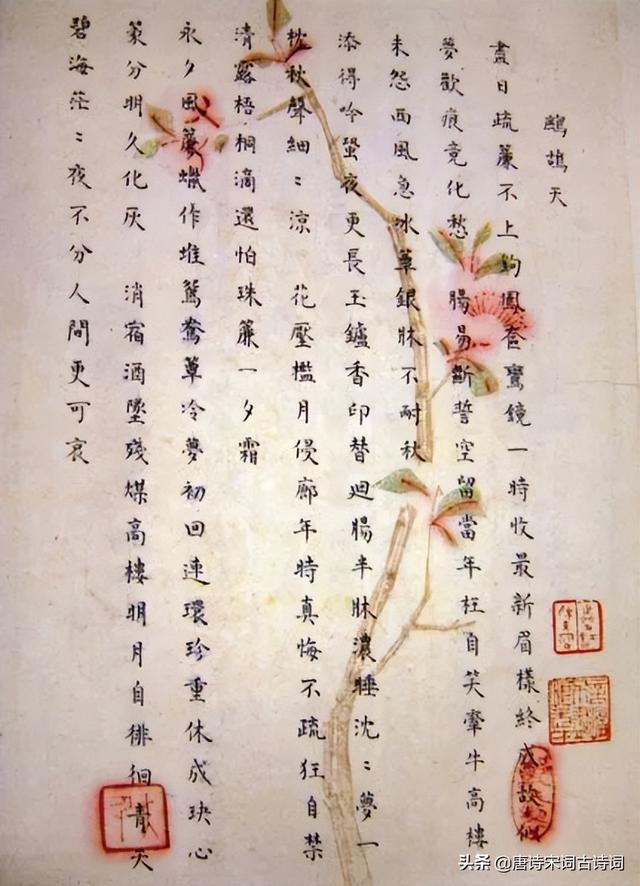 鷓鴣天
盡日疏簾不上鉤鳳奩鸞鏡一時收最新眉樣終成故似
夢歡痕竟化愁　腸易斷誓空留當年枉自笑牽牛高樓
未怨西風急冰簟銀牀不耐秋
添得吟蛩夜更長玉鑪香印替迴腸半牀濃睡沈〻夢一
枕秋聲細〻涼　花壓檻月侵廊年時真悔不疏狂自禁
清露梧桐滴還怕珠簾一夕霜
永夕風簾蠟作堆鴛鴦簟冷夢初回連環珍重休成玦心
篆分明久化灰　消宿酒墜殘煤高樓明月自徘徊青天
碧海茫〻夜不分人間更可哀
头条 @唐诗宋词古诗词